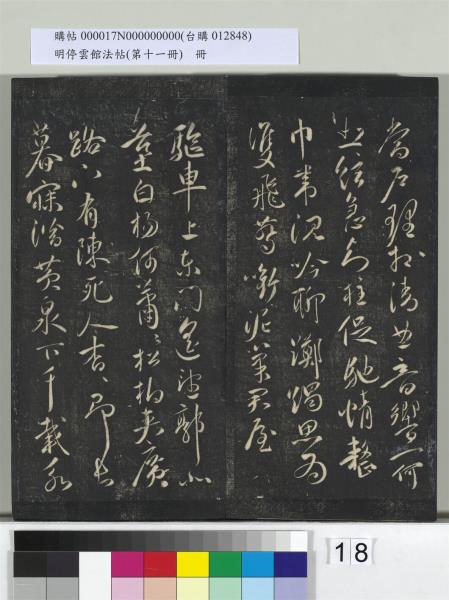 購帖 000017N000000000(台購 012848)
明停雲館法帖(第十一冊) 冊
當户理清曲音響一何
悲弦急知柱促馳情整
巾帶沉吟聊躑躅思為
雙飛燕銜泥巢君屋
驅車上東門遙望郭北
墓白楊何蕭〻松柏夾廣
路下有陳死人杳〻即長
暮寐潛黃泉下千載永
18